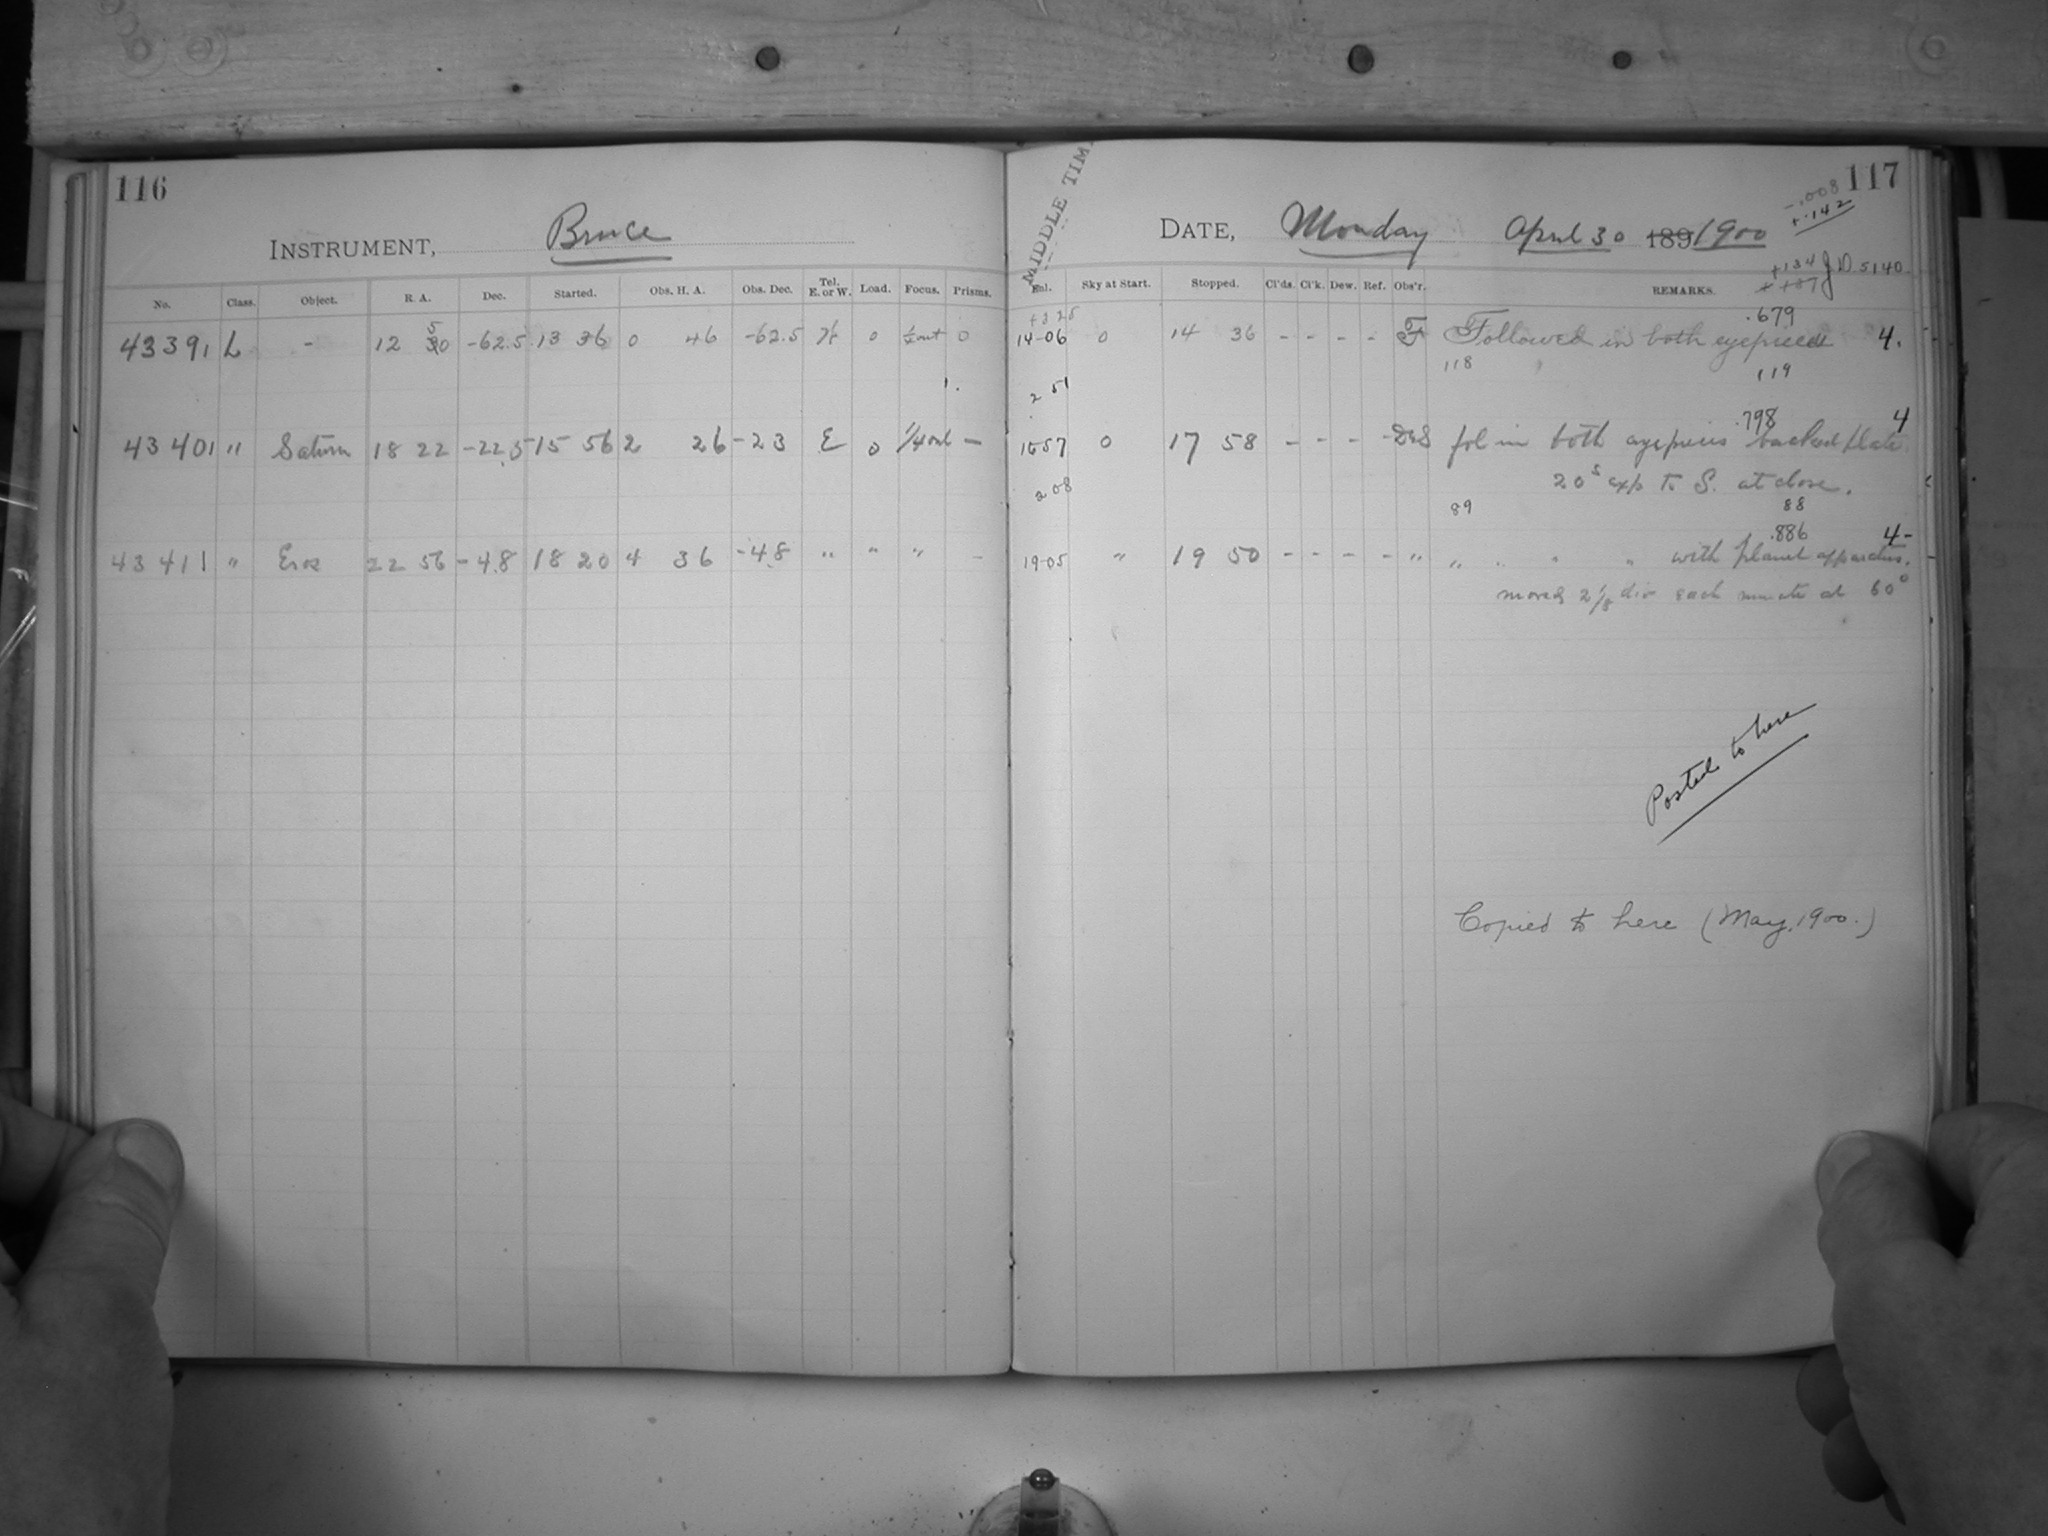 116
INSTRUMENT, Bruce
No. Class. Object. R. A. Dec. Started. Obs. H. A. Obs. Dec. Tel. E. or W. Load. Focus. Prisms.
43391 L - 12 50 -62.5 13 36 0 46 -62.5 0 ½out 0
1.
43401 " Saturn 18 22 -22.5 15 56 2 26 -23 E 0 ¼out -
43411 " Eros 22 56 -4.8 18 20 4 36 -4.8 " " " -
MIDDLE TIME
117
-.008
+.142
DATE, Monday April 30 189 1900
+134 J D 5140
Sky at Start. Stopped. Cl'ds. Cl'k. Dew. Ref. Obs'r. REMARKS.
+325 .679
14-06 0 14 36 - - - - F Followed in both eyepieces 4.
118 119
2 51
.798 4
1657 0 17 58 - - - - fol in both eyepieces backed plate.
20s exp to S. at close.
2 08
89 88
.886 4-
19-05 " 19 50 - - - - " " " " " with planet apparatus.
moved 2⅛ div each minute at 60°
Posted to here
Copied to here (May, 1900.)